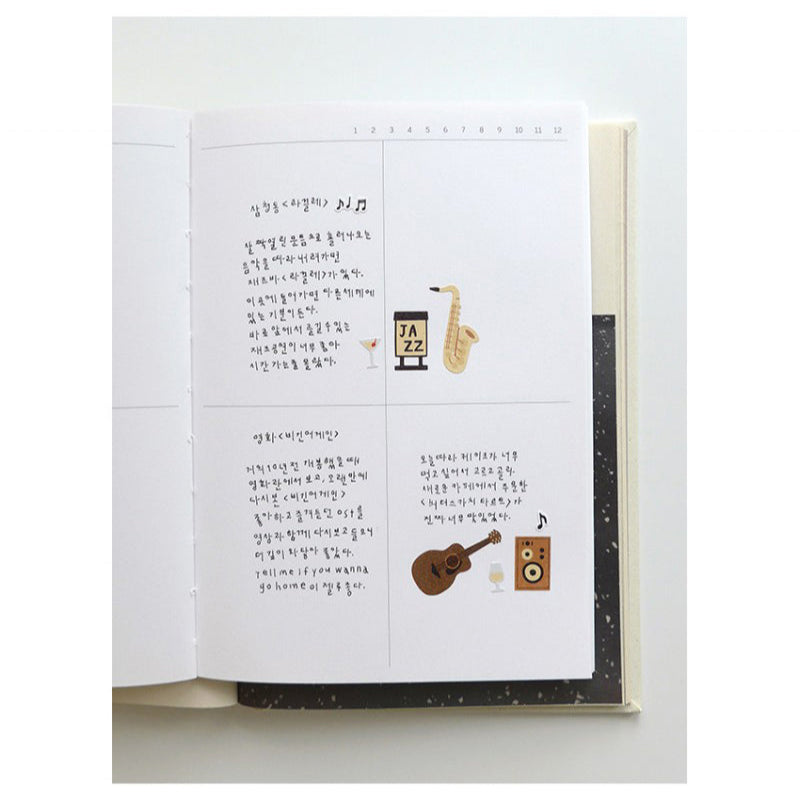 1 2 3 4 5 6 7 8 9 10 11 12
삼청동 <라끌레>
살짝 열린 문틈으로 흘러나오는
음악을 따라 내려가면
재즈바 <라끌레>가 있다.
이곳에 들어가면 다른 세계에
있는 기분이 든다.
바로 앞에서 즐길 수 있는
재즈공연이 너무 좋아
시간 가는 줄 몰랐다.
JA
ZZ
영화 <비긴어게인>
거의 10년 전 개봉했을 때
영화관에서 보고, 오랜만에
다시 본 <비긴어게인>
좋아하고 즐겨듣던 ost를
영상과 함께 다시 보고 들으니
더 깊이 와닿아 좋았다.
tell me if you wanna
go home이 젤루 좋다.
오늘따라 케이크가 너무
먹고 싶어서 고르고 골라
새로운 카페에서 주문한
<버터스카치 타르트>가
진짜 너무 맛있었다.